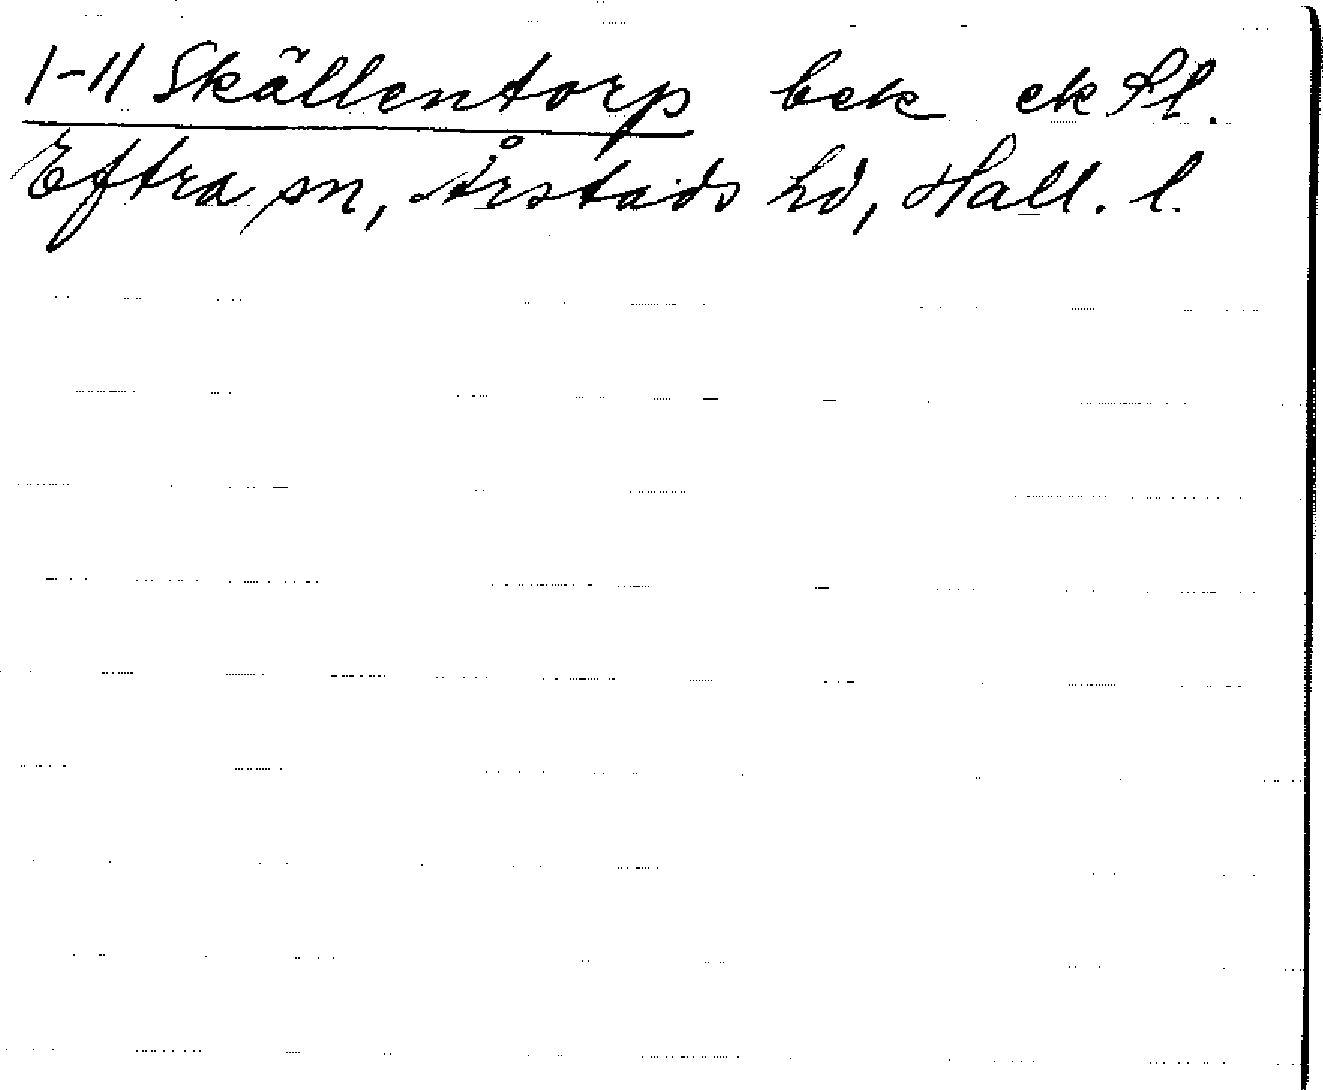 1-11 Skällentorp bek ek Bl.
Eftra sn, Årstads hd, Hall. l.